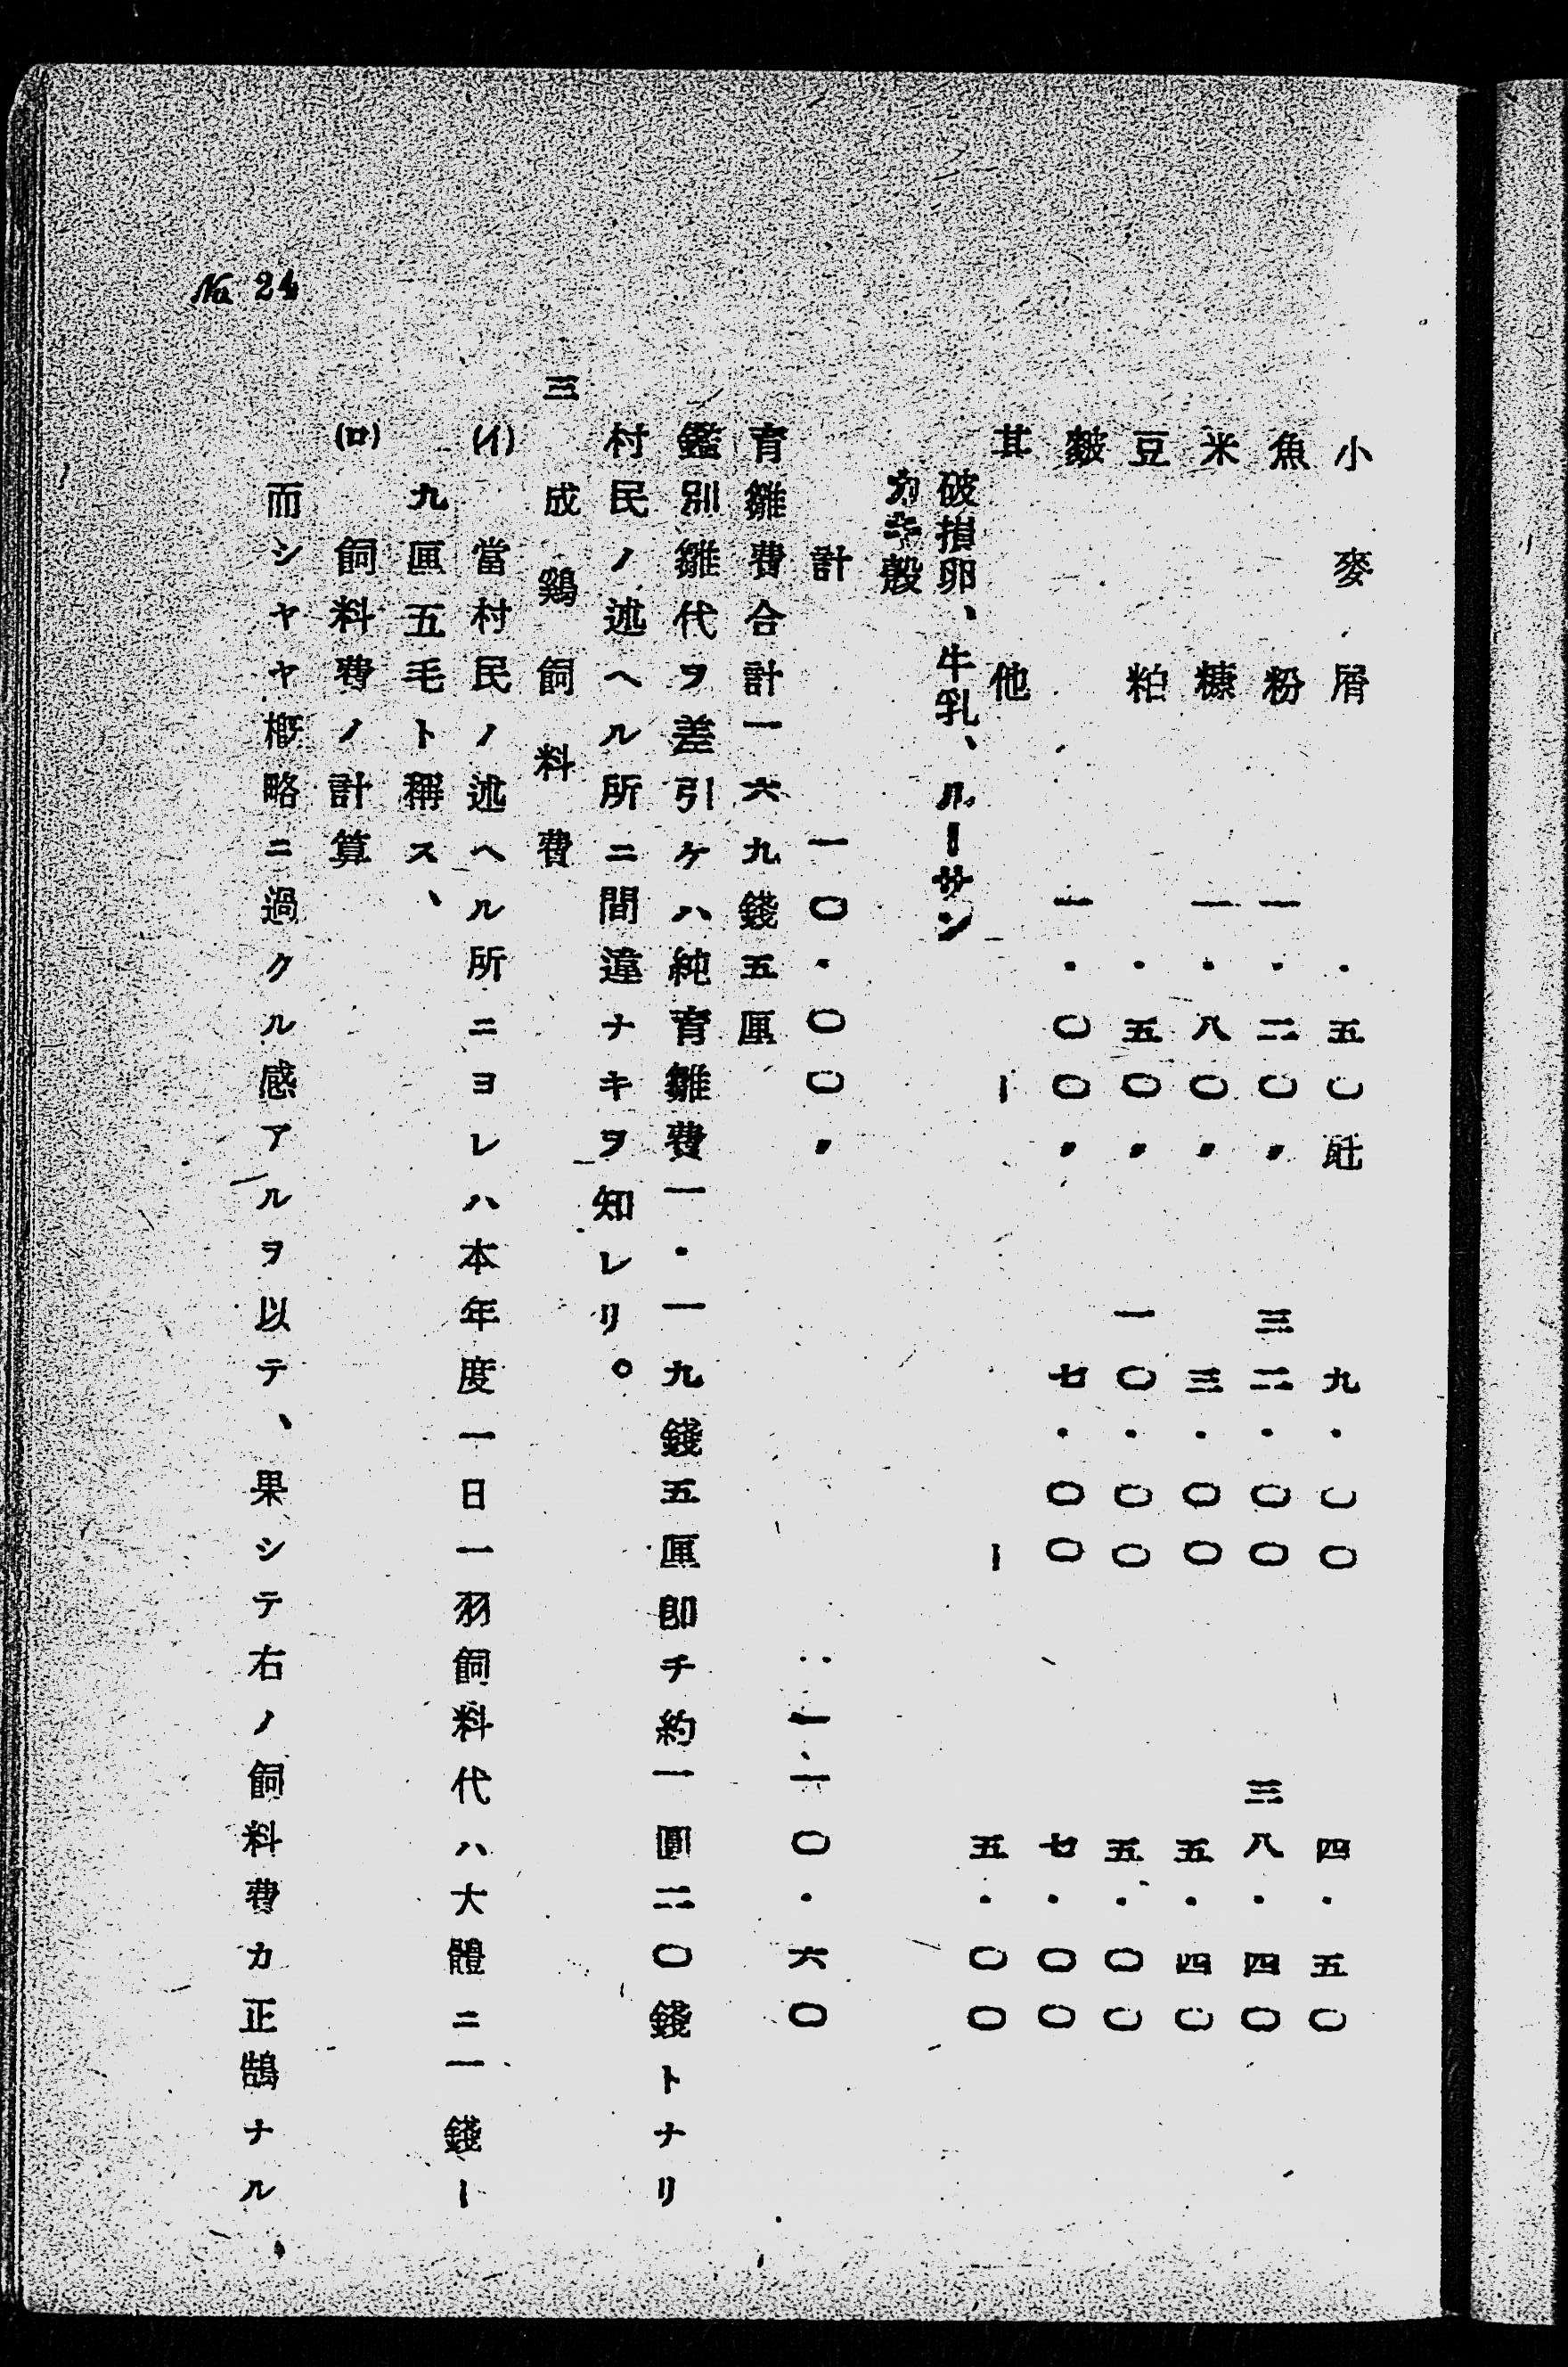 小麥屑 ・五〇瓩 九・〇〇 四・五〇
魚粉 一・二〇〃 三二・〇〇 三八・四〇
米糠 一・八〇〃 三・〇〇 五・四〇
豆粕 ・五〇〃 一〇・〇〇 五・〇〇
麬 一・〇〇〃 七・〇〇 七・〇〇
其他 ー ー 五・〇〇
破損卵、牛乳、ルーサン
カキ殼
計 一〇・〇〇〃 一、一〇・六〇
育雛費合計一六九錢五厘
鑑別雛代ヲ差引ケハ純育雛費一・一九錢五厘卽チ約一圓二〇錢トナリ
村民ノ述ヘル所ニ間違ナキヲ知レリ。
三 成鷄飼料費
(イ) 當村民ノ述ヘル所ニヨレハ本年度一日一羽飼料代ハ大體ニ一錢ー
九厘五毛ト稱ス、
(ロ) 飼料費ノ計算
而シヤヤ概略ニ過クル感アルヲ以テ、果シテ右ノ飼料費カ正鵠ナル、
No. 24